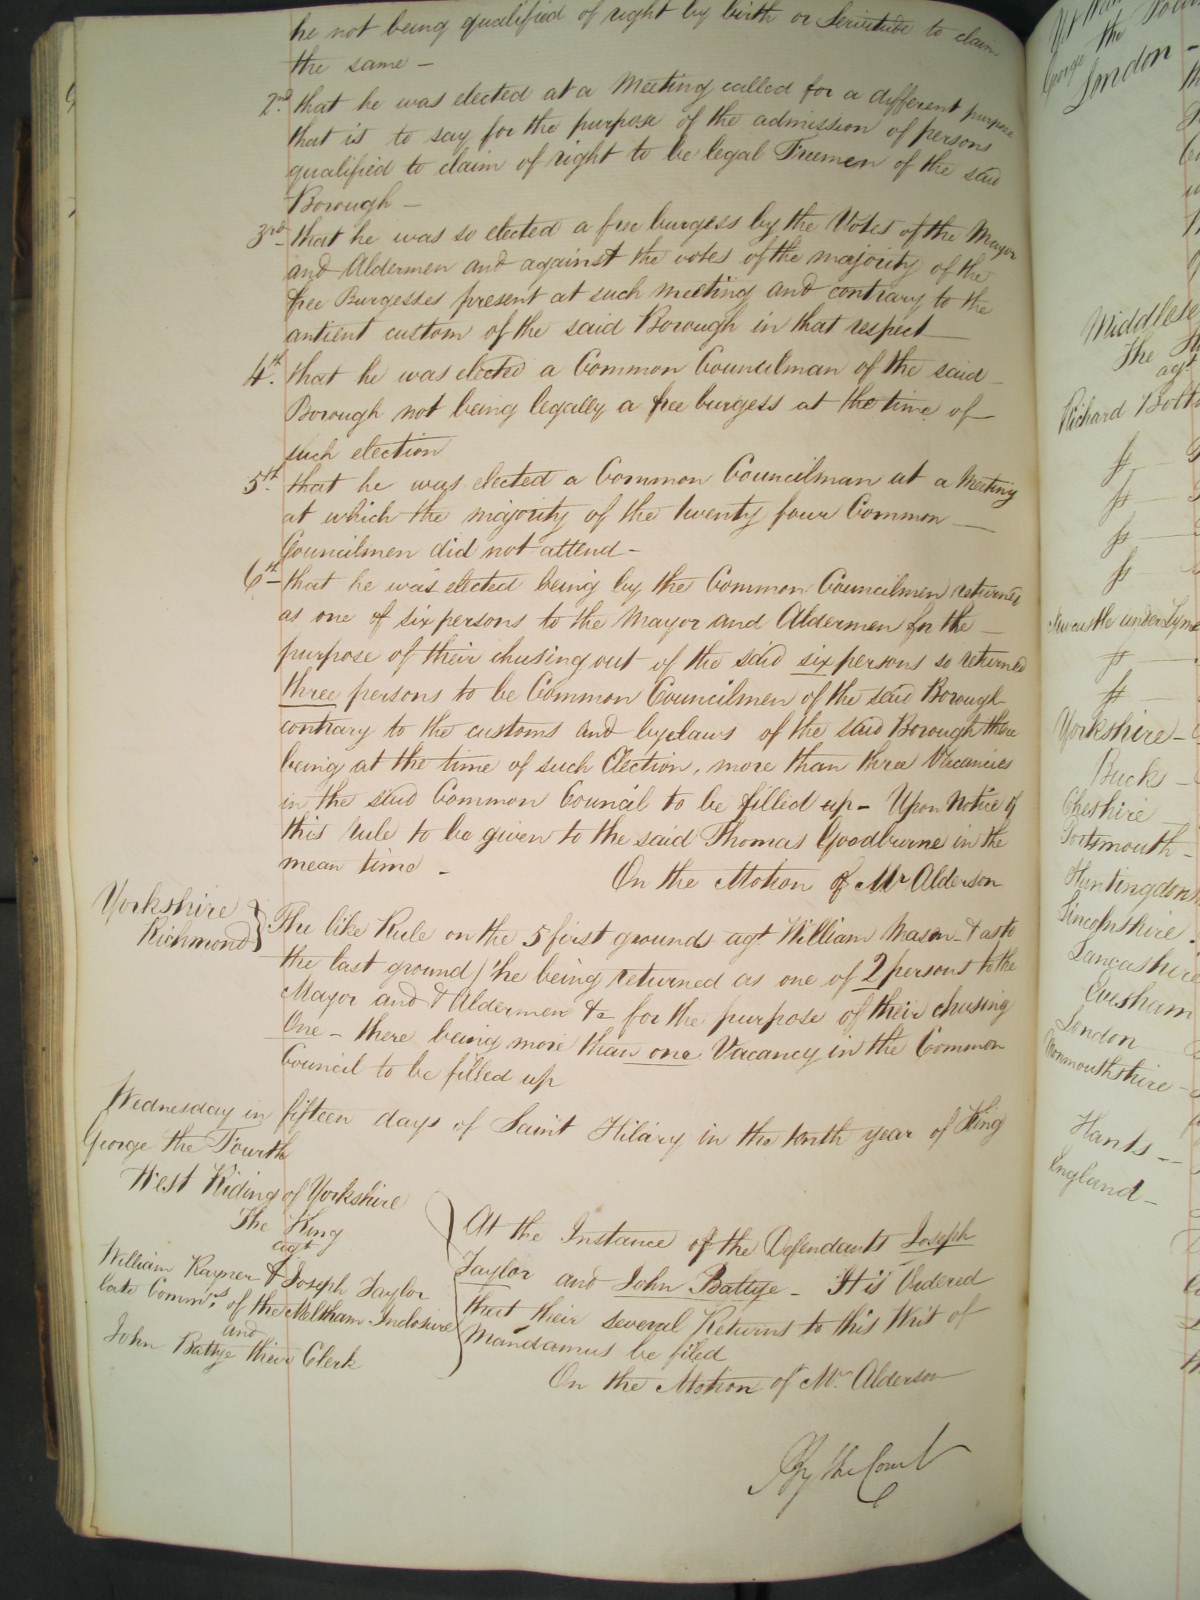 he not being qualified of right by birth or Servitude to claim
the same —
2nd that he was elected at a Meeting called for a different purpose
that is to say for the purpose of the admission of persons
qualified to claim of right to be legal Freemen of the said
Borough —
3rd that he was so elected a free burgess by the Votes of the Mayor
and Aldermen and against the votes of the majority of the
free Burgesses present at such meeting and contrary to the
antient custom of the said Borough in that respect —
4th. that he was elected a Common Councilman of the said —
Borough not being legally a free burgess at the time of
such election
5th. that he was elected a Common Councilman at a Meeting
at which the majority of the twenty four Common —
Councilmen did not attend —
6th — that he was elected being by the Common Councilmen returned
as one of six persons to the Mayor and Aldermen for the —
purpose of their chusing out of the said six persons so returned
three persons to be Common Councilmen of the said Borough
contrary to the customs and byelaws of the said Borough there
being at the time of such Election, more than three Vacancies
in the said Common Council to be filled up — Upon Notice of
this rule to be given to the said Thomas Goodburne in the
mean time — On the Motion of Mr Alderson
Yorkshire
Richmond } The like Rule on the 5 first grounds agt William Mason — & as to
the last ground / he being returned as one of 2 persons to the
Mayor and & Aldermen &c for the purpose of their chusing
One — there being more than one Vacancy in the Common
Council to be filled up
Wednesday in fifteen days of Saint Hilary in the tenth year of King
George the Fourth
West Riding of Yorkshire
The King
agt
William Rayner & Joseph Taylor
late Commrs of the Meltham Inclosure
and
John Battye their Clerk
At the Instance of the Defendants Joseph
Taylor and John Battye — It is Ordered
that their several Returns to this Writ of
Mandamus be filed
On the Motion of Mr Alderson
By the Court
George the
London —
Middlesex
The
agt
Richard
Newcastle under Lyme
Yorkshire —
Bucks —
Cheshire
Portsmouth —
Lincolnshire.
Lancashire
Evesham
London
Monmouthshire —
Hants —
England —